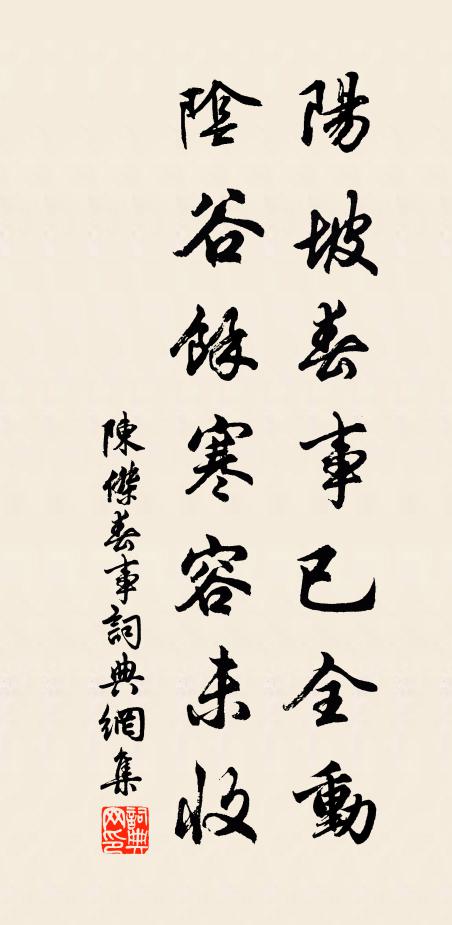 陽坡春事已全動
陰谷餘寒容未收
陳傑春事詞典網集
詞典網印